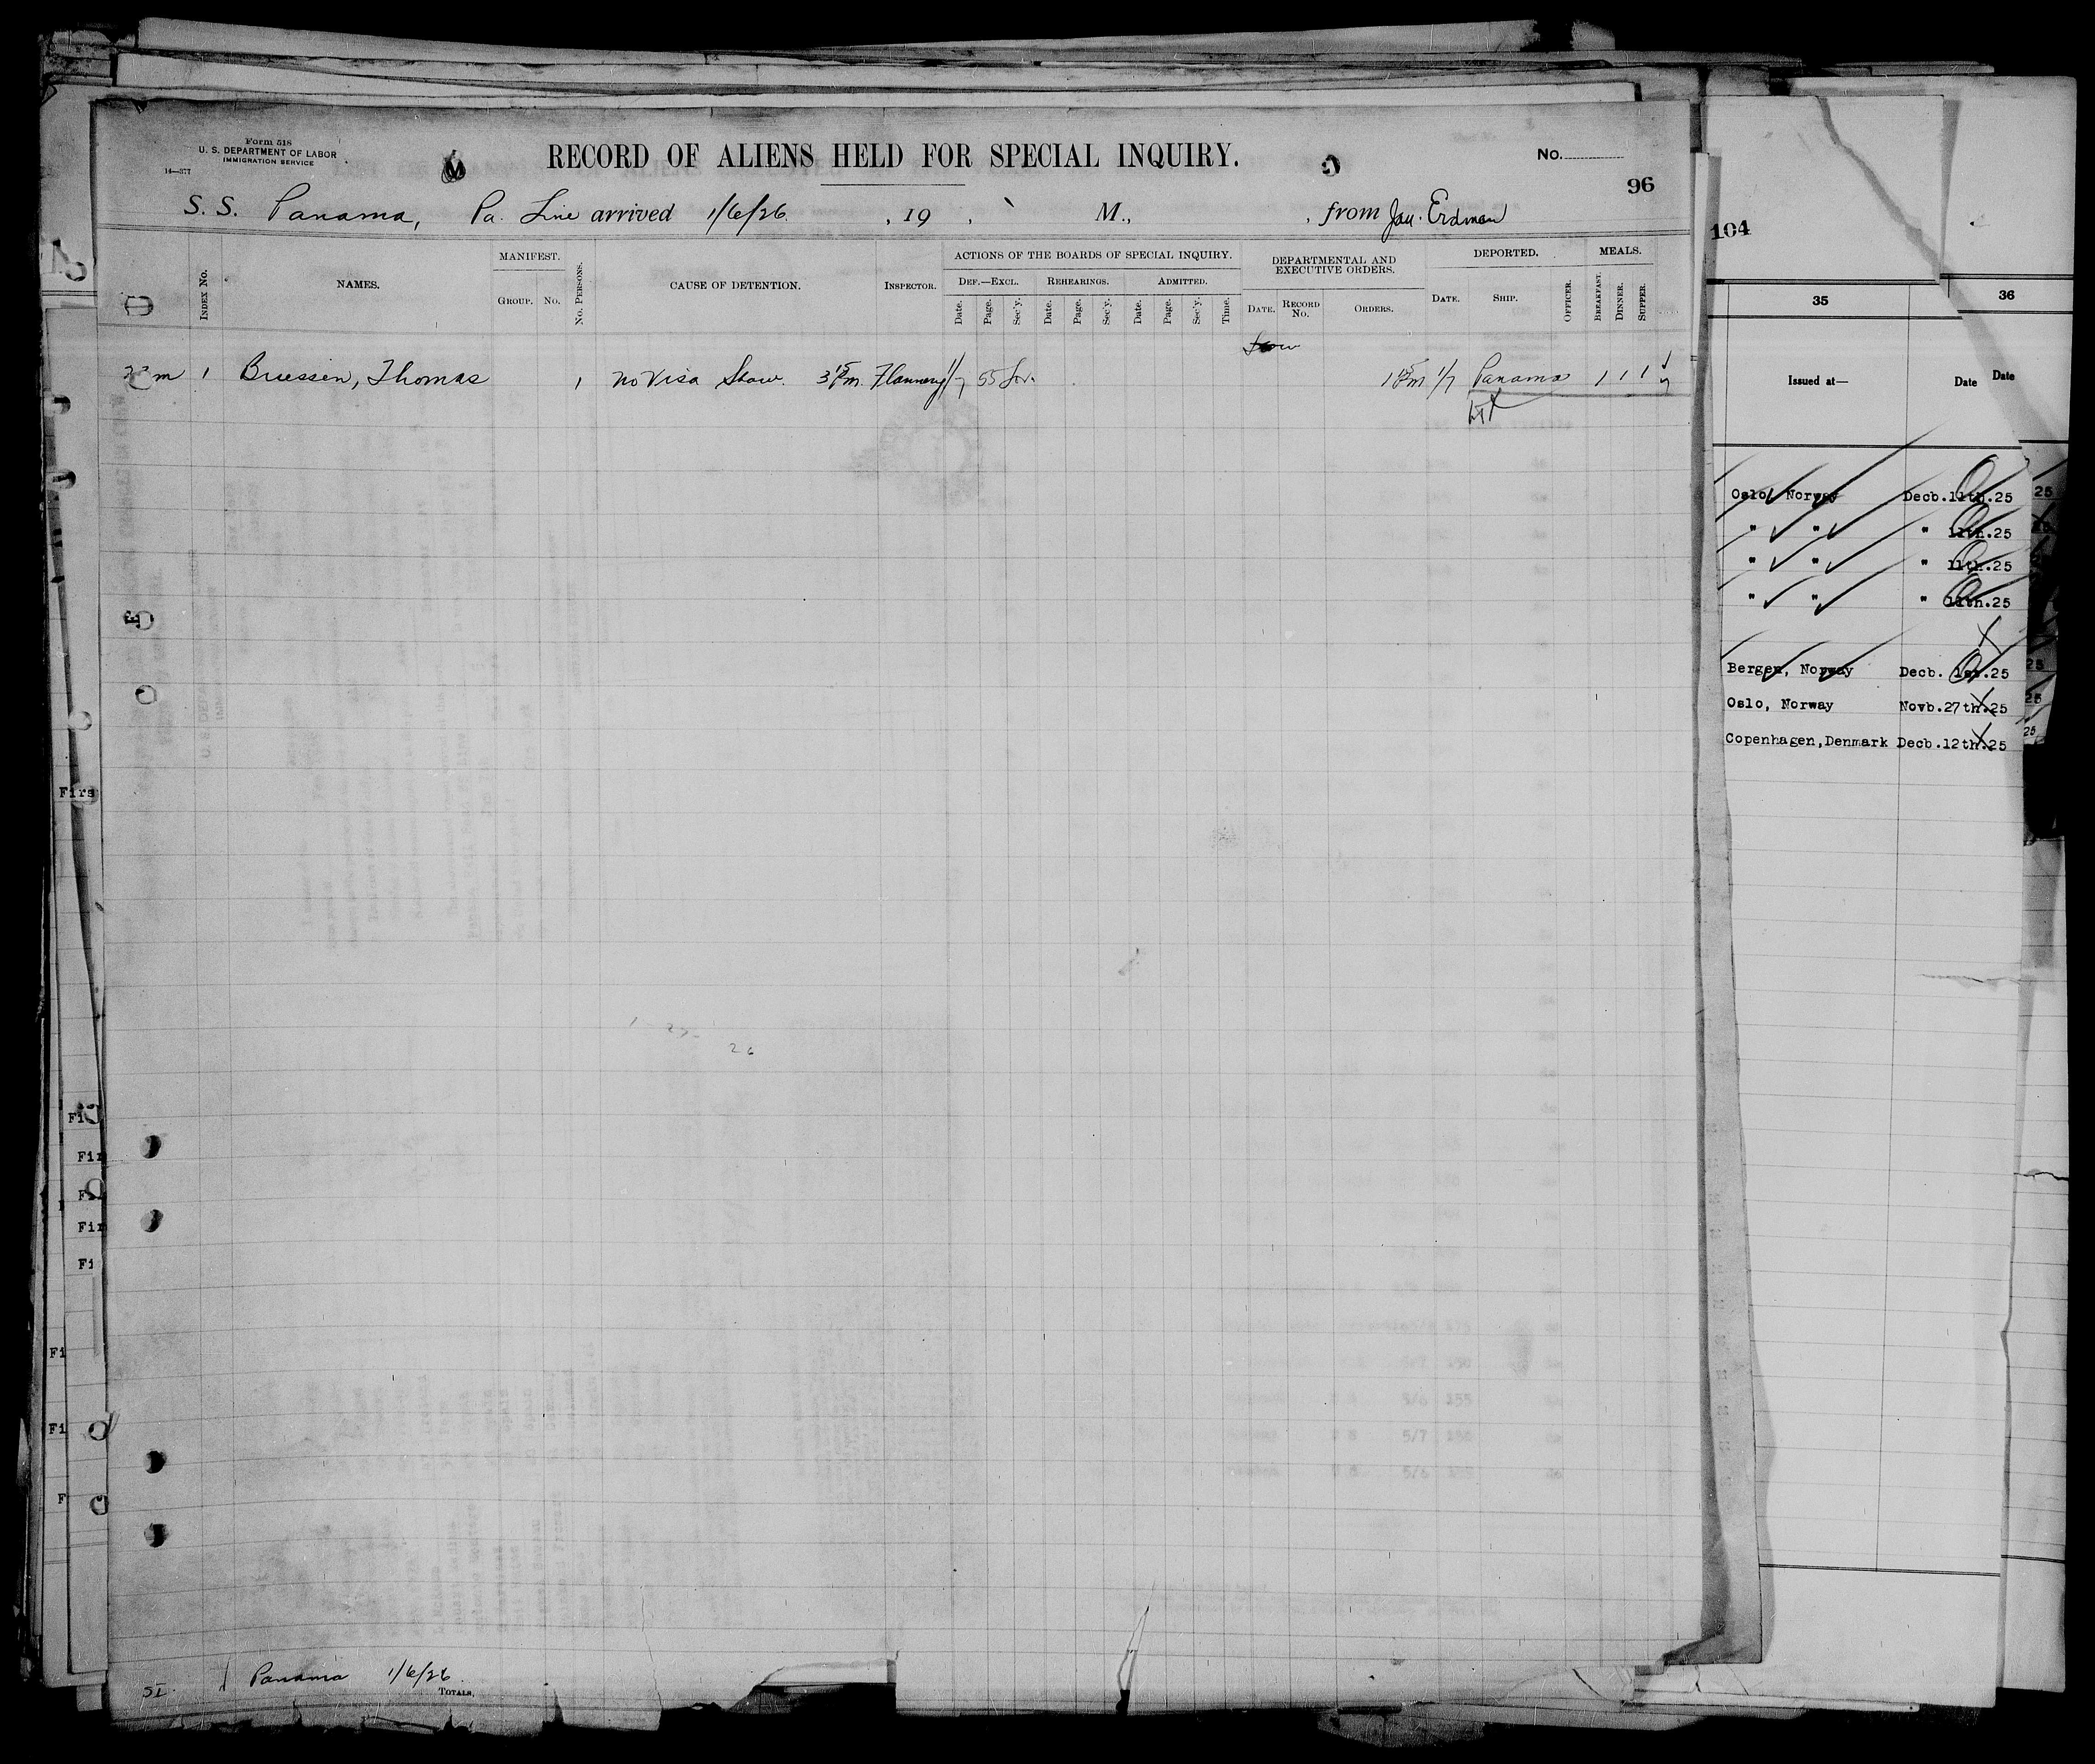 Form 518
U. S. DEPARTMENT OF LABOR
IMMIGRATION SERVICE
14—377
RECORD OF ALIENS HELD FOR SPECIAL INQUIRY.
No.
96
S. S. Panama, Pa. Line arrived 1/6/26 , 19 , M., , from Jau. Erdman
INDEX No.
NAMES.
MANIFEST.
GROUP. No.
No. PERSONS.
CAUSE OF DETENTION.
INSPECTOR.
ACTIONS OF THE BOARDS OF SPECIAL INQUIRY.
DEF.—EXCL. REHEARINGS. ADMITTED.
Date. Page. Sec'y. Date. Page. Sec'y. Date. Page. Sec'y. Time.
DEPARTMENTAL AND
EXECUTIVE ORDERS.
DATE. RECORD No. ORDERS.
DEPORTED.
DATE. SHIP. OFFICER.
MEALS.
BREAKFAST. DINNER. SUPPER.
m 1 Bruessen, Thomas 1 no visa Stow. Flannery 1/7 55 1/7 Panama 1 1 1
1 23
26
SI. 1 Panama 1/6/26
TOTALS,
104
35 36
Issued at— Date Date
Oslo, Norway Decb.11th.25 25
" " " 11th.25
" " " 11th.25
" " " 11th.25
Bergen, Norway Decb. 1st.25 25
Oslo, Norway Novb.27th.25 25
Copenhagen,Denmark Decb.12th.25 25
Firs
Fi
Fir
Fi
Fir
Fi
Fi
Fi
F